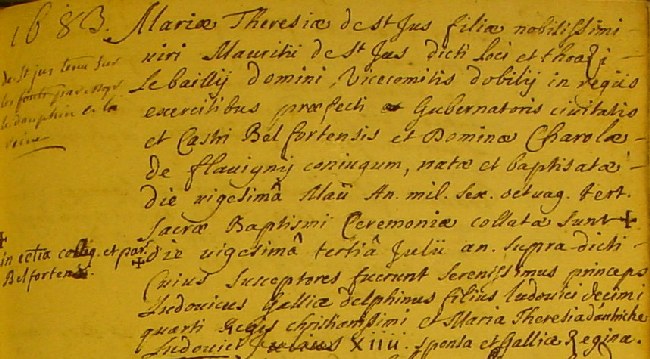 1683.
Mariæ Theresiæ de st Jus filiæ nobilissimi
viri Mauritii de st Jus dicti loci et
Lebailly Domini, Vicecomitis dobilij in regiis
exercitibus præfecti Gubernatoris civitatis
et Castri Belfortensis et Dominæ Carolæ
de flavigny coniugum, natæ et baptisatæ
die vigesimâ Maii An. mil. sex. octuag. tert.
Sacræ Baptismi Ceremoniæ collatæ sunt +
die vigesimâ tertiâ Julii an. supra dicti
Cuius susceptores fuerunt Serenissimus princeps
Ludovicus Galliæ delphinus filius ludovici decimi
quarti Regis christianissimi et Maria Theresia daustriche
Ludovici XIIII. sponsa et Galliæ Regina.
de st jus tenu sur
les fonts par Mgr
le dauphin et la
reine
+
in ecclia colleg. et par.
Belfortensi. +